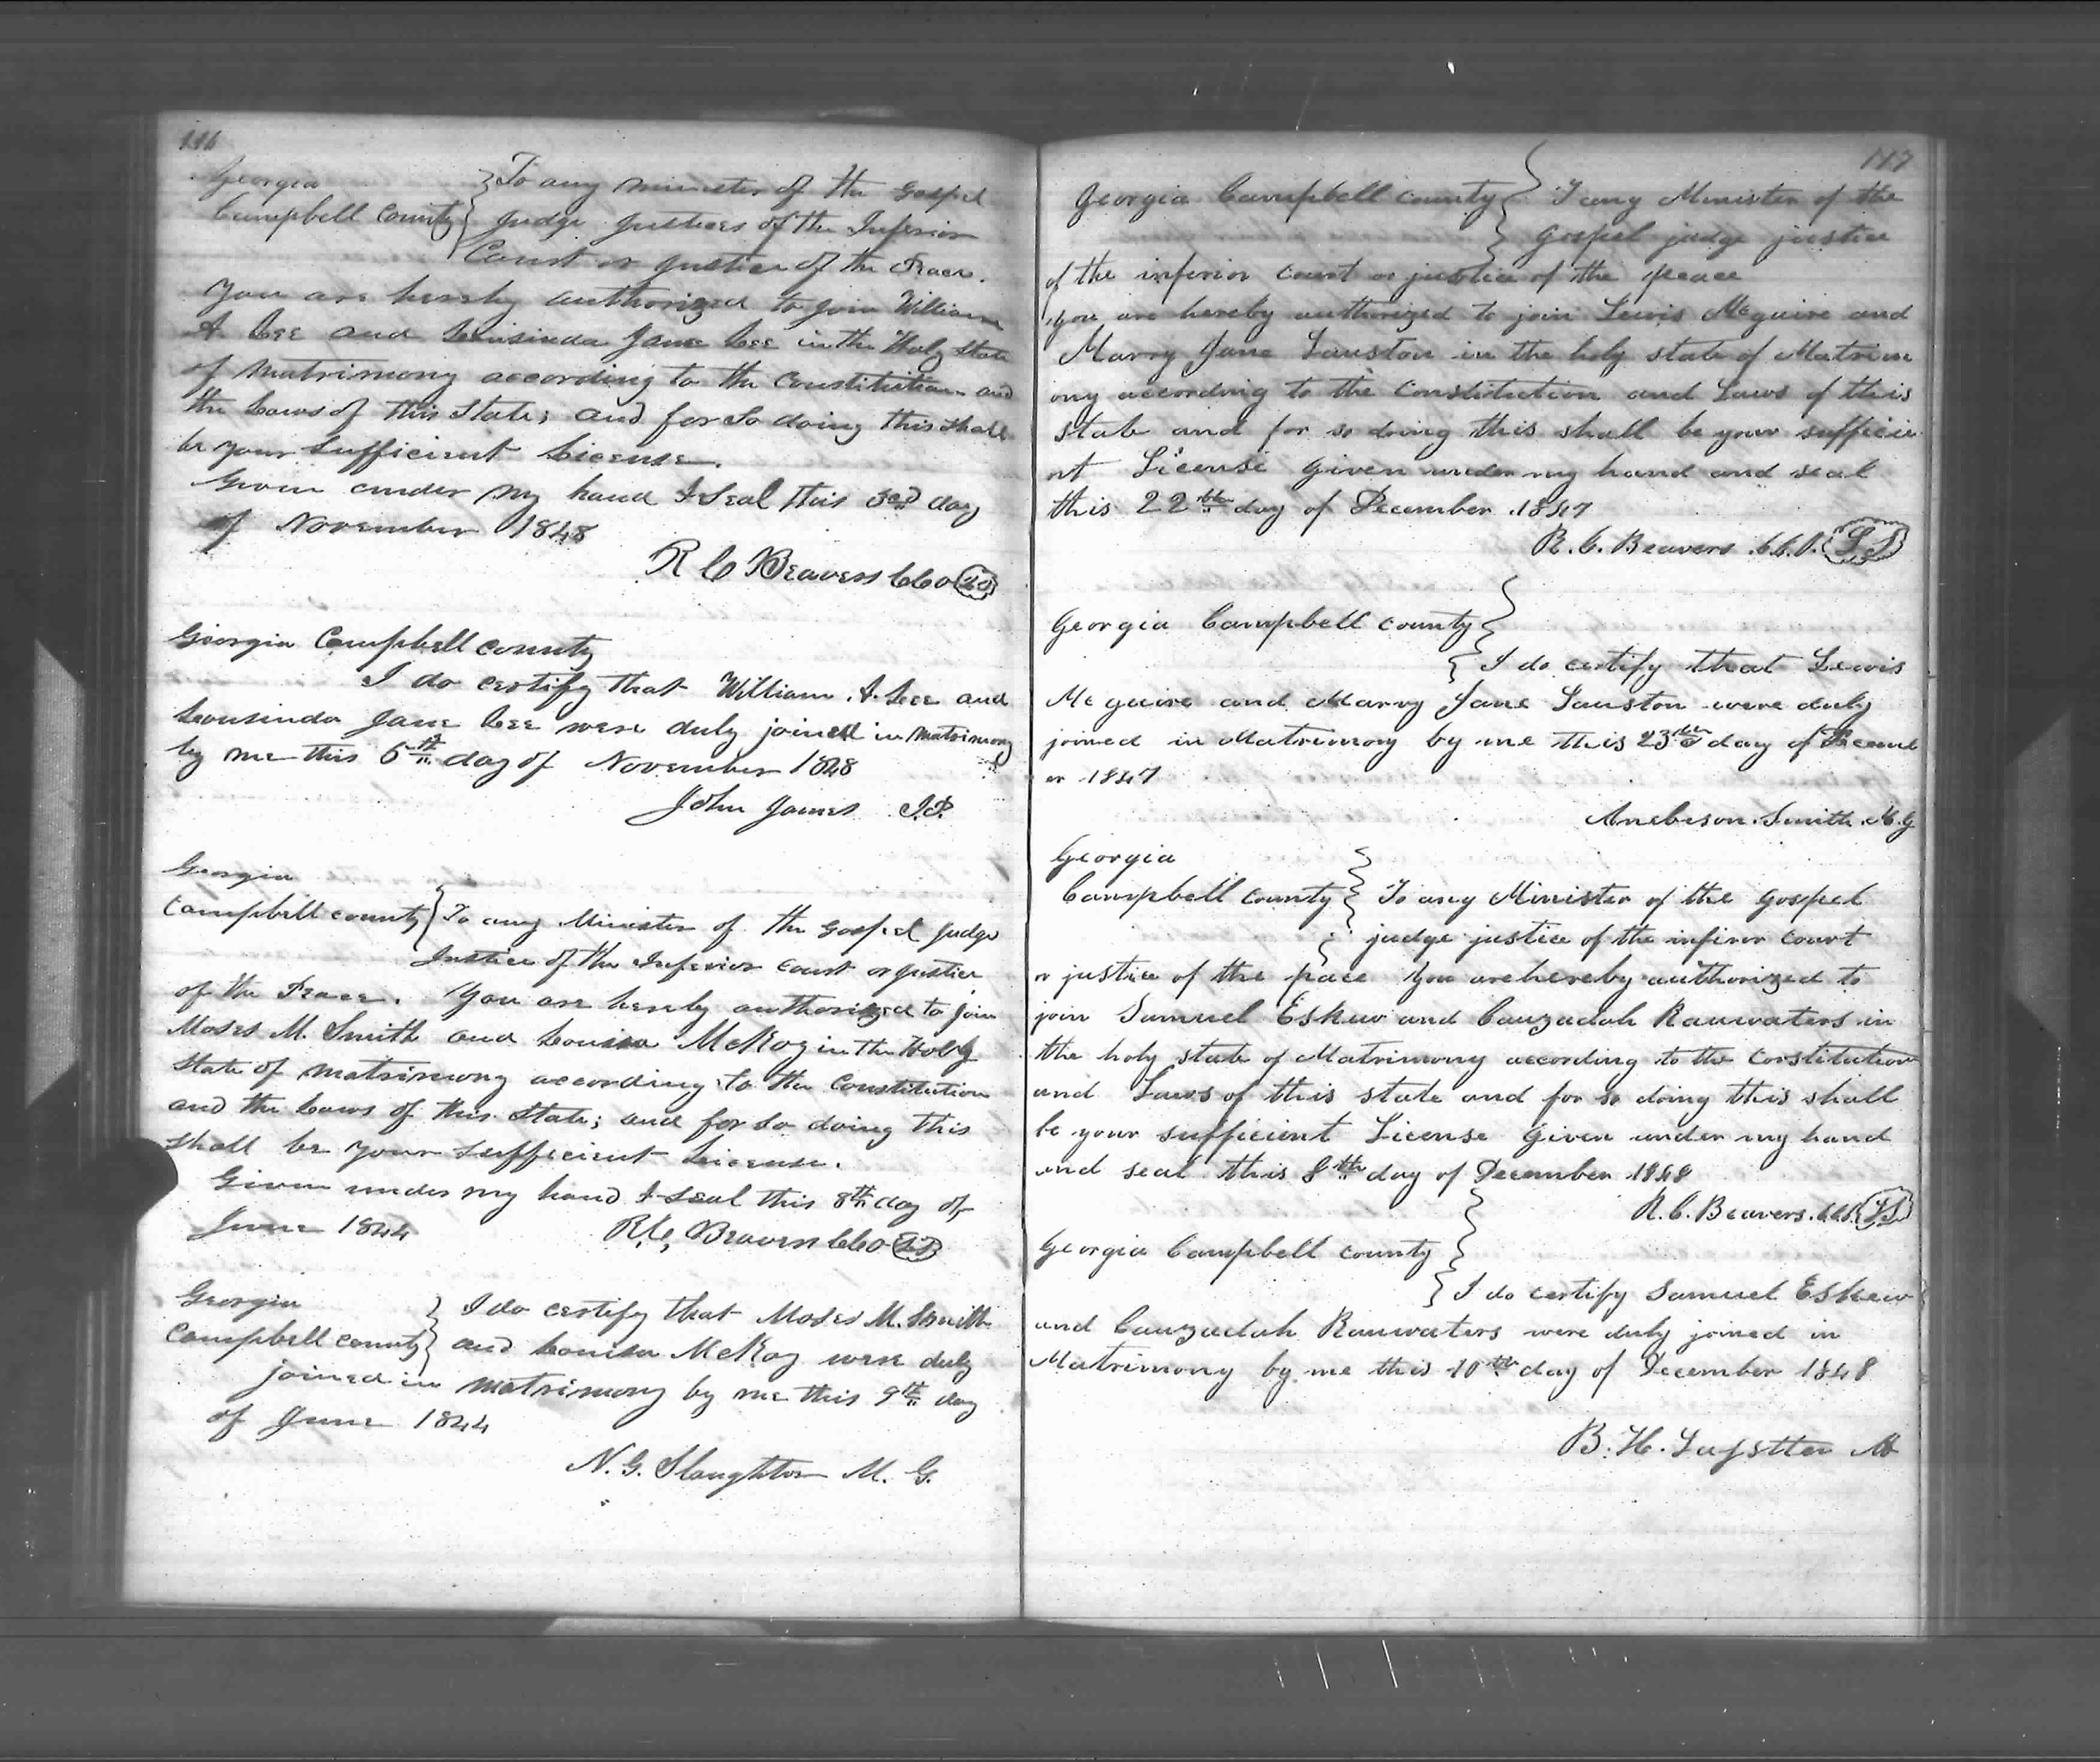 116
Georgia
Campbell County
To any minister of the Gospel
Judge Justices of the Inferior
Court or Justice of the Peace.
You are hereby authorized to join William
A. Lee and Jane Lee in the Holy State
of matrimony according to the Constitution and
the Laws of this State; and for So doing this shall
be your Sufficient License.
Given under my hand & Seal this 3rd day
of November 1848
R C Beavers CCO LS
Georgia Campbell County
I do certify that William A. Lee and
Lousinda Jane Lee were duly joined in matrimony
by me this 6th day of November 1848
John James J.P.
Georgia
Campbell County
To any Minister of the Gospel Judge
Justice of the Inferior Court or Justice
of the Peace. You are hereby authorized to join
Moses M. Smith and Louisa McKoy in the Holy
State of matrimony according to the Constitution
and the Laws of this State; and for So doing this
shall be your Sufficient License.
Given under my hand & Seal this 8th day of
June 1844
R C, Beavers CCO LS
Georgia
Campbell County
I do certify that Moses M. Smith
and Louisa McKoy were duly
joined in matrimony by me this 9th day
of June 1844
N. G. Slaughter M. G.
117
Georgia Campbell County
T any Minister of the
Gospel judge justice
of the inferior Court or justice of the peace
you are hereby authorized to join Lewis McGuire and
Marry Jane Lauston in the holy state of Matrim
ony according to the Constitution and Laws of this
state and for so doing this shall be your sufficie
nt License Given under my hand and seal
this 22th day of December 1847
R. C. Beavers C.C.O. LS
Georgia Campbell County
I do certify that Lewis
McGuire and Marry Jane Lauston were duly
joined in Matrimony by me this 23th day of Decemb
er 1847
Smith M.G
Georgia
Campbell County
To any Minister of the Gospel
judge justice of the inferior Court
or justice of the peace You are hereby authorized to
join Samuel Eskew and Cauzadah Rauwaters in
the holy state of Matrimony according to the Constitution
and Laws of this state and for so doing this shall
be your sufficient License Given under my hand
and seal this 8th day of December 1848
R. C. Beavers. C.C.O. LS
Georgia Campbell County
I do certify Samuel Eskew
and Cauzadah Rauwaters were duly joined in
Matrimony by me this 10th day of December 1848
B. H.